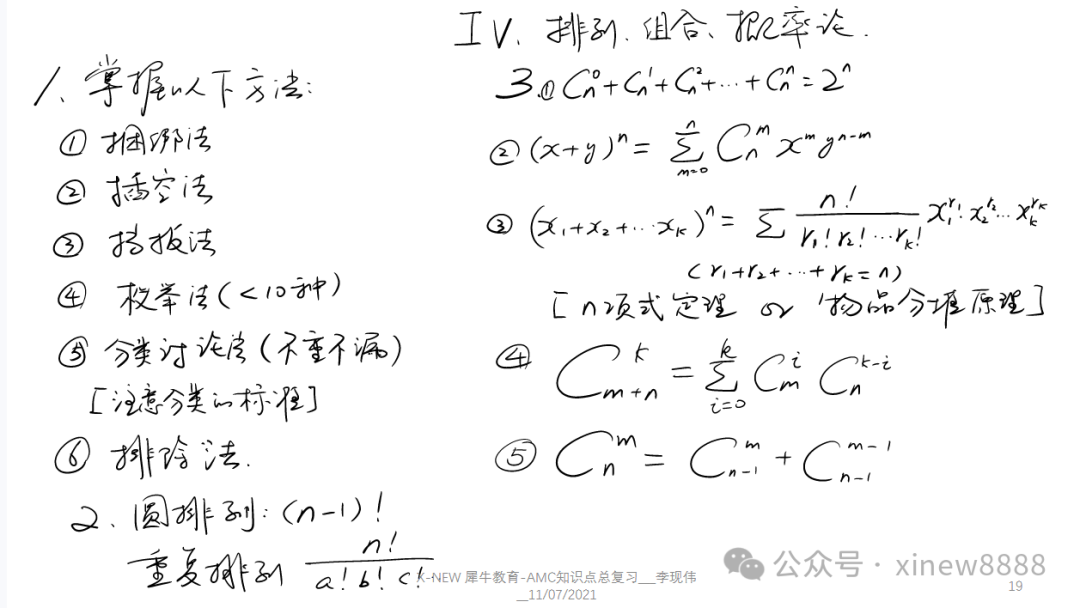 IV、排列、组合、概率论.
1、掌握以下方法:
① 捆绑法
② 插空法
③ 挡板法
④ 枚举法(<10种)
⑤ 分类讨论法(不重不漏)
[注意分类的标准]
⑥ 排除法.
2、圆排列:(n-1)!
重复排列 n!/(a! b! c!)
3.① C_n^0+C_n^1+C_n^2+…+C_n^n=2^n
② (x+y)^n = ∑_{m=0}^{n} C_n^m x^m y^{n-m}
③ (x_1+x_2+…x_k)^n = ∑ n!/(r_1! r_2! … r_k!) x_1^{r_1}·x_2^{r_2}…x_k^{r_k}
(r_1+r_2+…+r_k=n)
[n项式定理 or 物品分堆原理]
④ C_{m+n}^k = ∑_{i=0}^{k} C_m^i C_n^{k-i}
⑤ C_n^m = C_{n-1}^m + C_{n-1}^{m-1}
K-NEW 犀牛教育-AMC知识点总复习___李现伟
__11/07/2021
公众号·xinew8888
19